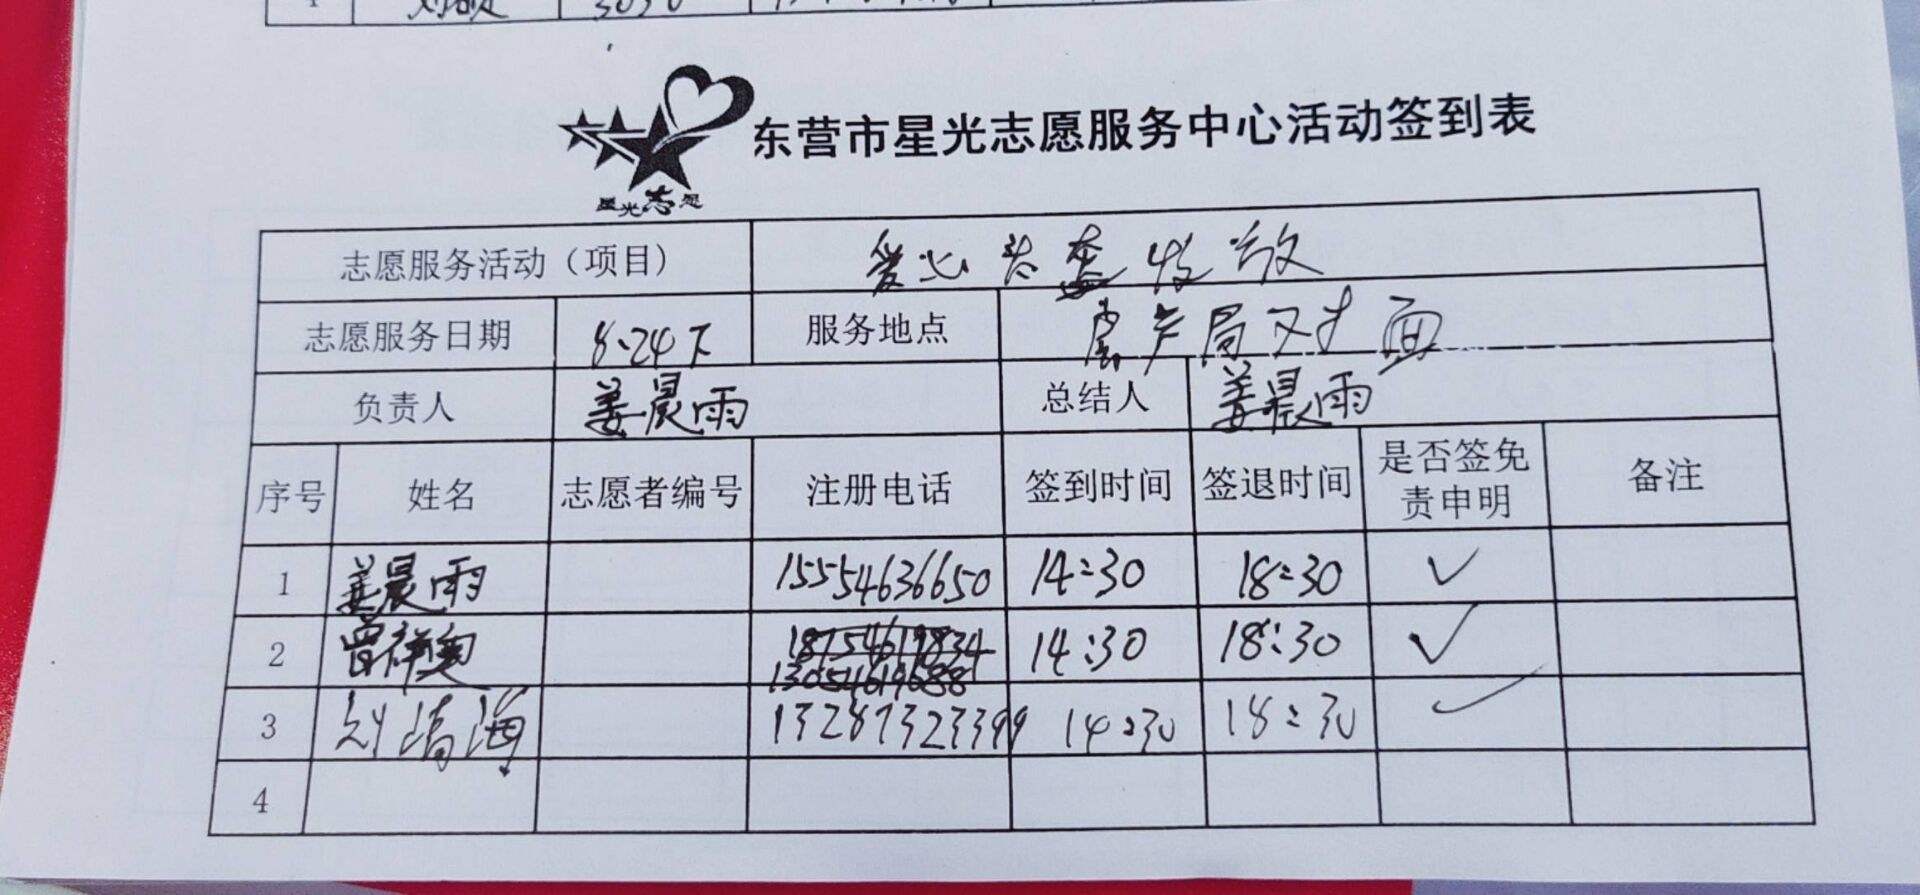 东营市星光志愿服务中心活动签到表
星光志愿
志愿服务活动（项目） 爱心头盔收放
志愿服务日期 8.24下 服务地点 房产局对面
负责人 姜晨雨 总结人 姜晨雨
序号 姓名 志愿者编号 注册电话 签到时间 签退时间 是否签免责申明 备注
1 姜晨雨 15554636650 14:30 18:30 ✓
2 14:30 18:30 ✓
13054619688
3 刘靖海 13287323399 14:30 18:30 ✓
4